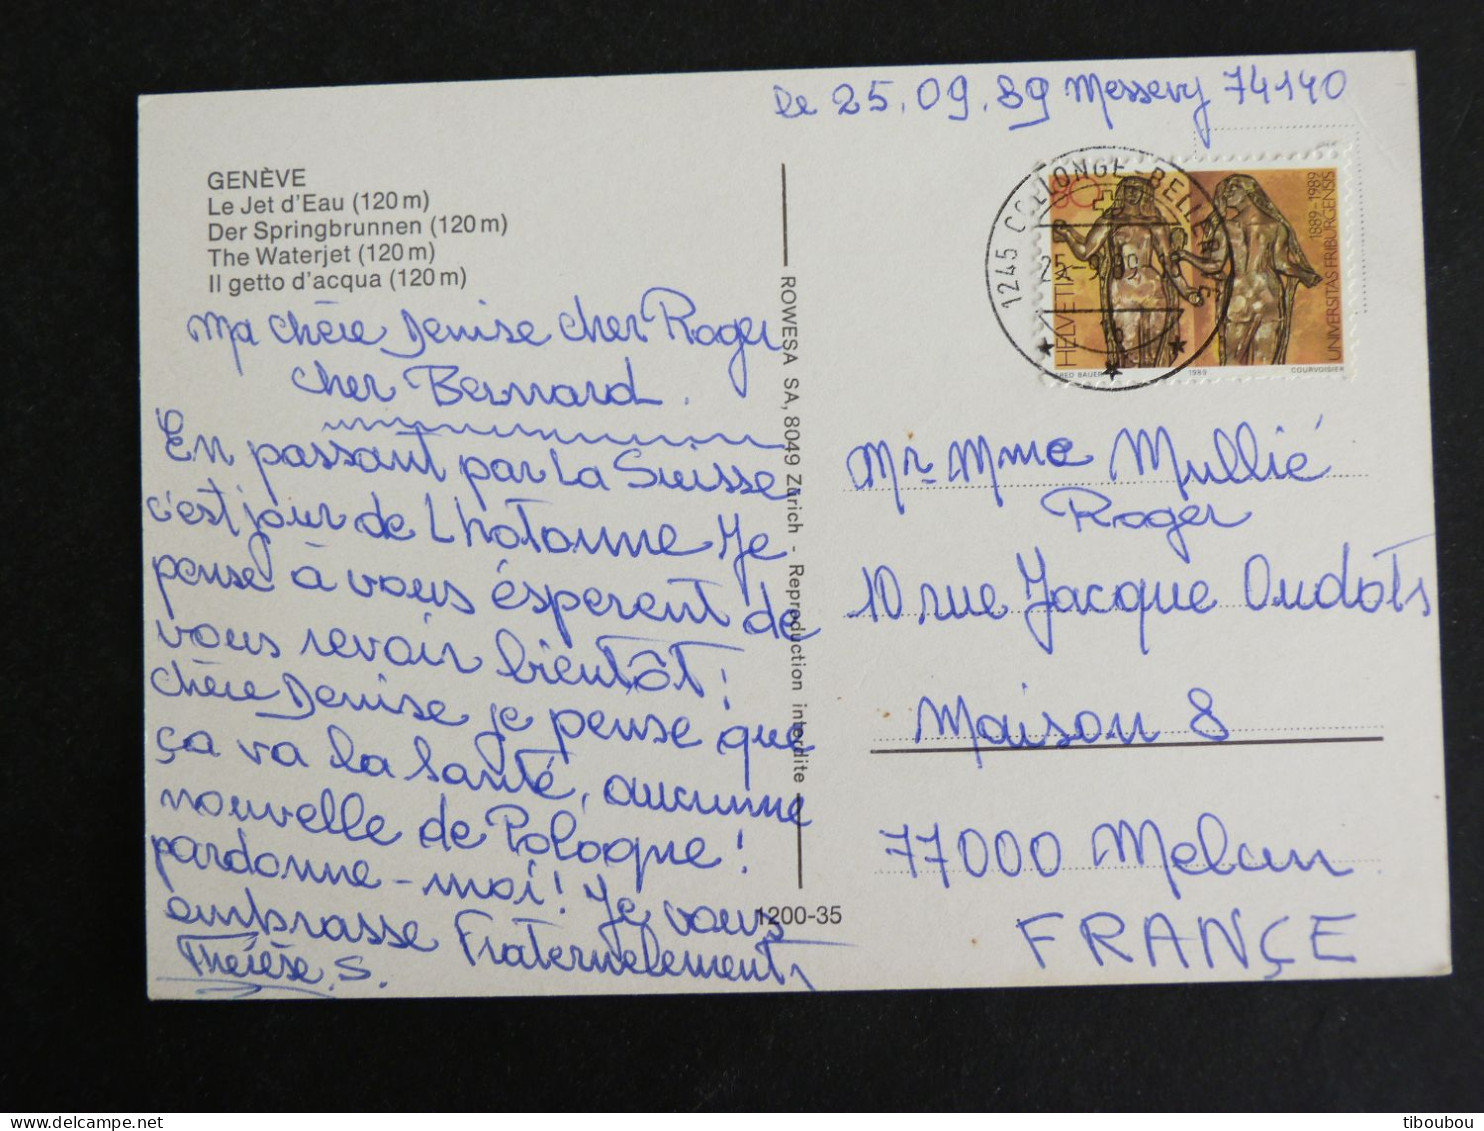 le 25.09.89 Messery 74140
GENÈVE
Le Jet d'Eau (120 m)
Der Springbrunnen (120 m)
The Waterjet (120 m)
Il getto d'acqua (120 m)
Ma chère Denise cher Roger
cher Bernard.
En passant par La Suisse
c'est jour de L'hotonne Je
pense à vous ésperent de
vous revoir bientôt!
chère Denise je pense que
ça va la santé, aucunne
nouvelle de Pologne!
pardonne-moi! Je vous
embrasse Fraternelement,
Thérèse. S.
ROWESA SA, 8049 Zürich - Reproduction interdite
1200-35
1245 COLLONGE-BELLERIVE
25-9.89-18
HELVETIA
80
1889-1989
UNIVERSITAS FRIBURGENSIS
1989
COURVOISIER
Mr Mme Mullié
Roger
10 rue Jacque Oudots
Maison 8
77000 Melun
FRANÇE
tiboubou